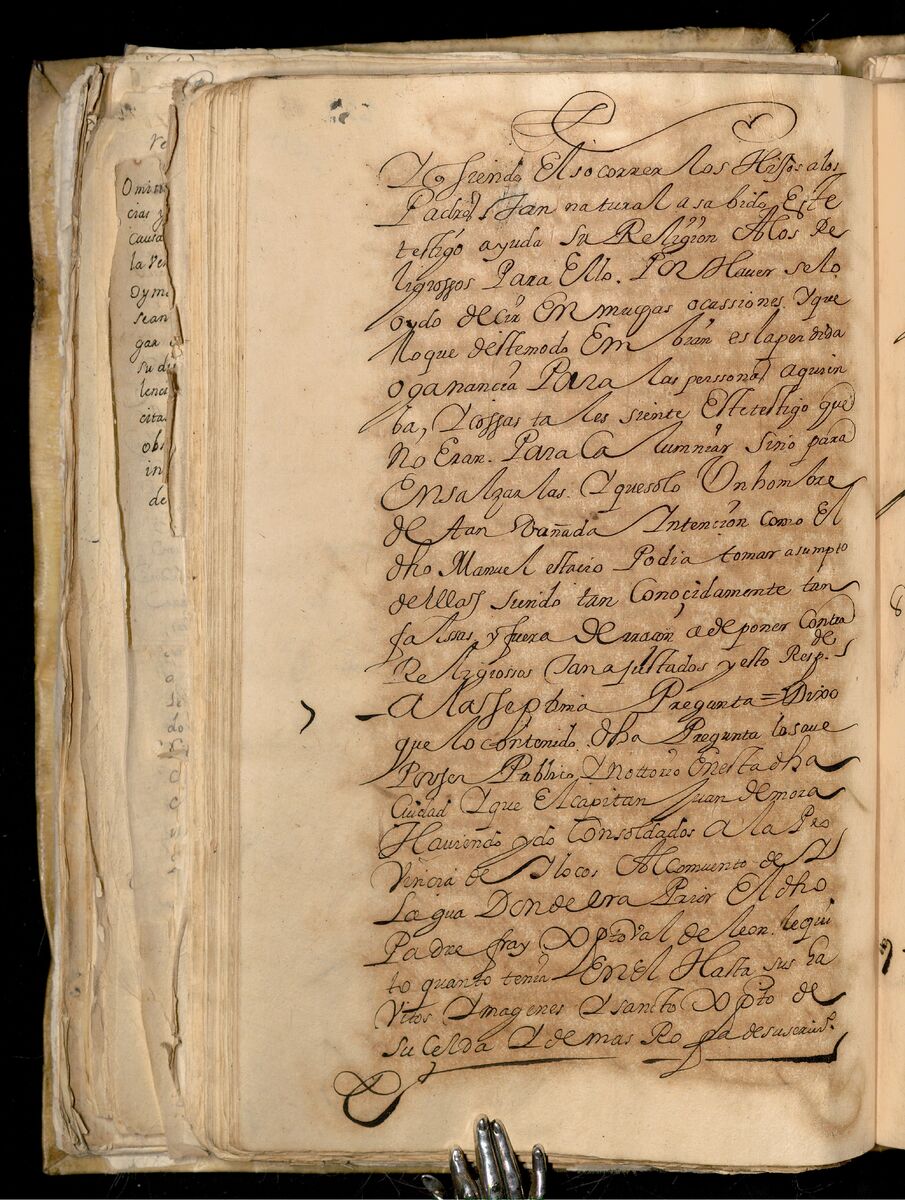 re
Omisi
cias y
causa
la ver
oyme
sean
gar
su di
lenci
cita
obs
in
de
Y siendo El socorrer los Hijos a los
Padres tan natural a sabido Este
testigo ayuda su Religion A los Re
ligiossos Para Ello. Por Haver selo
oydo decir En muchas ocassiones Y que
lo que deste modo Embian es la perdida
o ganancia Para las perssonas a quien
ba, Y cossas tales siente Este testigo que
No Eran. Para Calumniar sino para
Ensalzarlas. Y que solo Un hombre
de tan Dañada Intencion como El
dho Manuel estacio Podia tomar asumpto
de Ellas siendo tan Conocidamente tan
falssas y fuera de rraçon, a deponer Contra
Religiossos tan ajustados y esto Resp.de
A la sseptima Pregunta = Dixo
que lo contenido dha Pregunta lo save
Por ser Publico, Y nottorio En esta dha
Ciudad Y que El capitan Juan de mora
Haviendo ydo Con soldados A la Pro
Vincia de Ylocos Al Comvento de
Lagua Donde era Prior El dho
Padre fray Xptoval de leon. le qui
to quanto tenia En El Hasta sus ha
Vitos Ymagenes Y sancto Xpto de
su Celda Y demas Ropa de su servis.